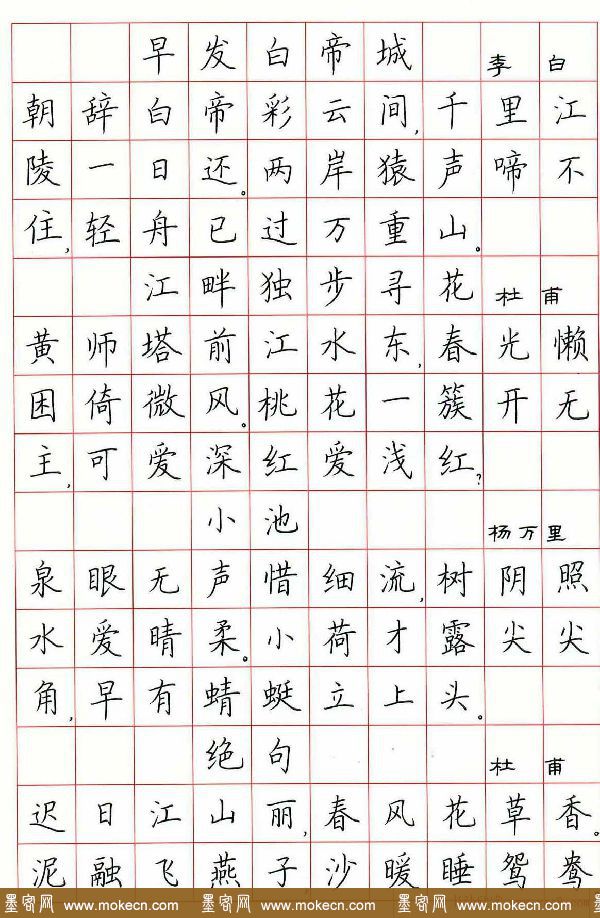 早发白帝城 李白
朝辞白帝彩云间,千里江
陵一日还。两岸猿声啼不
住,轻舟已过万重山。
江畔独步寻花 杜甫
黄师塔前江水东,春光懒
困倚微风。桃花一簇开无
主,可爱深红爱浅红?
小池 杨万里
泉眼无声惜细流,树阴照
水爱晴柔。小荷才露尖尖
角,早有蜻蜓立上头。
绝句 杜甫
迟日江山丽,春风花草香。
泥融飞燕子,沙暖睡鸳鸯
墨客网 www.mokecn.com 墨客网 www.mokecn.com 墨客网 www.mokecn.com